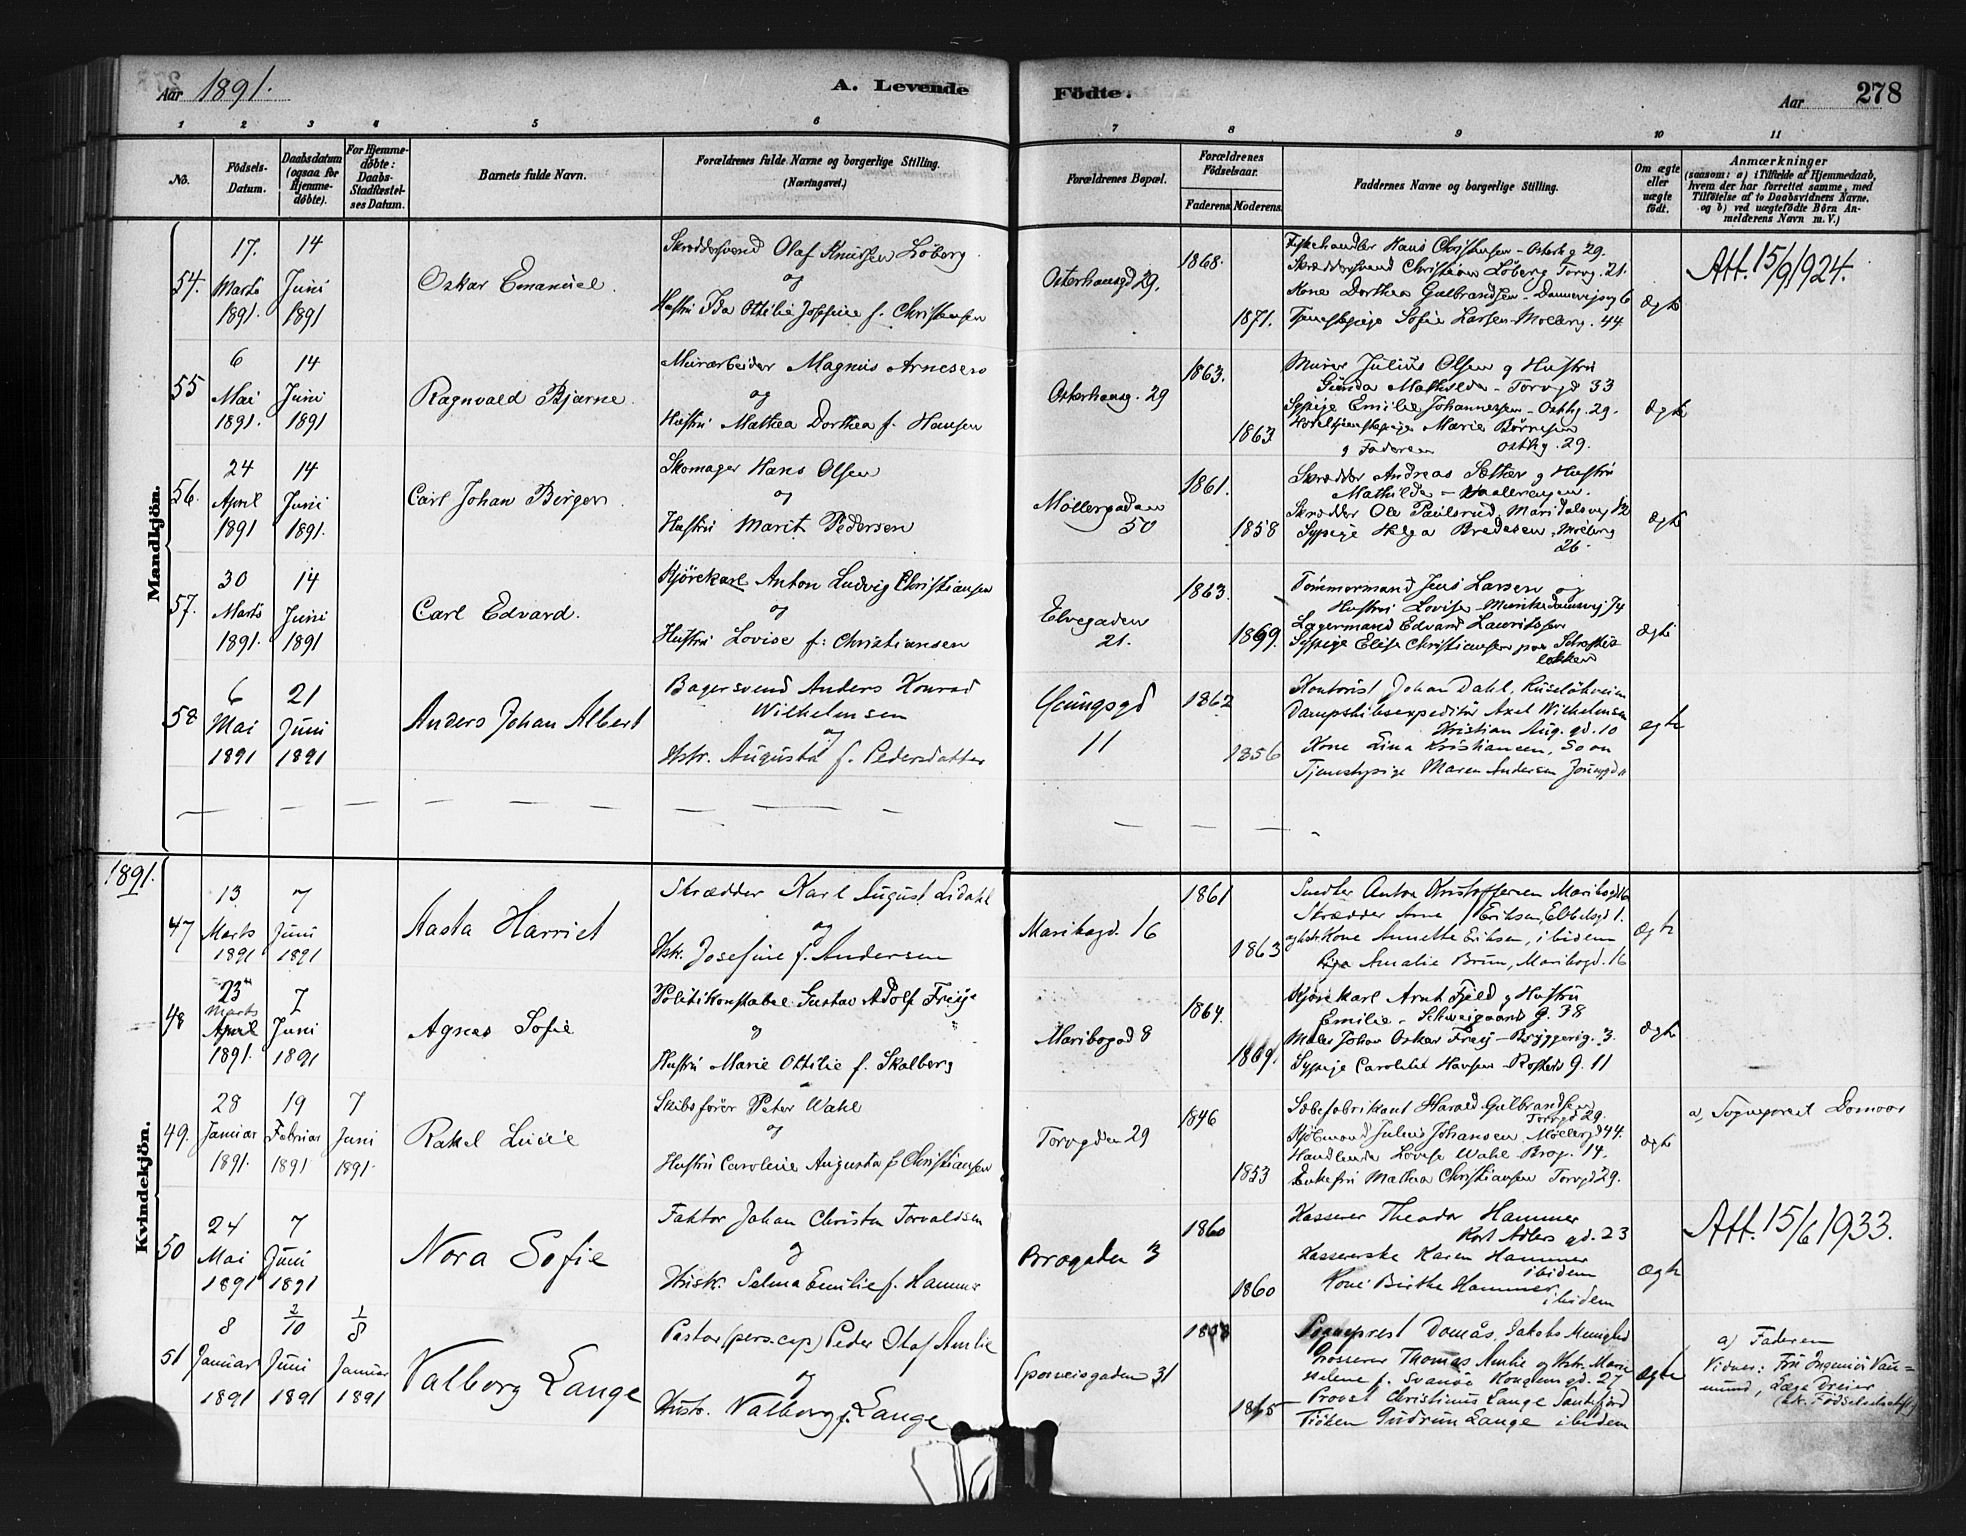 Aar 1891.
A. Levende
Fødte.
Aar
278
1 2 3 4 5 6 7 8 9 10 11
No.
Fødsels-Datum.
Daabsdatum (ogsaa for Hjemme-døbte).
For Hjemme-døbte: Daabs-Stadfæstel-ses Datum.
Barnets fulde Navn.
Forældrenes fulde Navne og borgerlige Stilling.
(Næringsvei.)
Forældrenes Bopæl.
Forældrenes Fødselsaar.
Faderens. Moderens.
Faddernes Navne og borgerlige Stilling.
Om ægte eller uægte født.
Anmærkninger
(saasom: a) i Tilfælde af Hjemmedaab,
hvem der har forrettet samme, med
Tilføielse af to Daabsvidners Navne.
og b) ved uægtefødte Børn An-
melderens Navn m. V.)
Mandkjön.
54.
17. Marts 1891.
14 Juni 1891
Oskar Emanuel
Skræddersvend Olaf Knudsen Löberg
og
Hustru Ida Ottilie Josefine f. Christensen
Osterhausgd 29.
1868.
1871.
Fiskehandler Hans Christensen - Osterhg 29.
Skræddersvend Christian Löberg Torvg. 21.
Kone Dorthea Gulbrandsen - Dannevigsvg 6
Tjenestepige Sofie Larsen - Möllerg. 44
Ægte
Att. 15/9 1924.
55
6 Mai 1891.
14 Juni 1891
Ragnvald Bjarne.
Murarbeider Magnus Arnesen
og
Hustru Mathea Dorthea f. Hansen
Osterhausg. 29
1863.
1863
Murer Julius Olsen g Hustru
Gunda Mathilde - Torvgd 33
Sypige Emilie Johannessen - Osthg. 29.
Marie
g Faderen Osthg. 29.
Ægte
56.
24 April 1891
14 Juni 1891.
Carl Johan Birger
Skomager Hans Olsen
og
Hustru Marit Pedersen
Möllergaden
50
1861.
1858
Skrædder Andreas Sæther g Hustru
Mathilde - Vaalerengen.
Skrædder Ole Paulsrud, Maridalsvg 12
Sypige Helga Bredesen, Möllerg
26.
Ægte
57.
30 Marts 1891.
14 Juni 1891
Carl Edvard.
Kjörekarl Anton Ludvig Christiansen
og
Hustru Lovise f: Christiansen
Elvegaden
21.
1863.
1869.
Tömmermand Jens Larsen og
Hustru Lovise - Munkedamsvej 74
Lagermand Edvard Lauritssen
Sypige Elise Christiansen
lökken
Ægte
58
6 Mai 1891
21 Juni 1891
Anders Johan Albert
Bagersvend Anders Konrad
Wilhelmsen
og
Hstr. Augusta f. Pedersdatter
Youngsgd
11
1862
1856
Kontorist Johan Dahl, Ruselökveien
Dampskibsexpeditör Axel Wilhelmsen
Kristian Aug. gd. 10
Kone Lina Kristiansen,
Tjenestepige Maren Andersen
Ægte
1891.
Kvindekjön.
47
13. Marts 1891
7 Juni 1891
Aasta Harriet
Skrædder Karl August Lidahl
og
Hstr. Josefine f. Andersen
Maribogd. 16
1861
1863
Snedker Anton Kristoffersen Maribogd 16
Skrædder Arne Eriksen,
Kone Annette Eriksen, ibidem
Pige Amalie Brun, Maribogd. 16
Ægte
48
23 Marts April 1891.
7 Juni 1891
Agnes Sofie
Politikonstabel Gustav Adolf Freij
g
Hustru Marie Ottilie f. Skalberg
Maribogd 8
1864.
1869.
Kjörekarl Arnt Fjeld g Hustru
Emilie - Schweigaards g. 38
Maler Johan Oskar Freij - Bryggerig. 3.
Sypige Caroline Hansen - Rosteds g. 11
Ægte
49.
28 Januar 1891.
19 Februar 1891
7 Juni 1891.
Rakel Lucie
Skibsförer Peter Wahl
og
Hustru Caroline Augusta f Christiansen
Torvgden 29
1846
1853
Sæbefabrikant Harald Gulbrandsen
Torvgd 29.
Kjöbmand Julius Johansen, Möllergd 44.
Handlende Lovise Wahl Brog. 14.
Enkefru Mathea Christiansen Torvgd 29.
Ægte
a, Sogneprest Domaas
50
24 Mai 1891
7 Juni 1891
Nora Sofie
Faktor Johan Christen Torvaldsen
g
Hustr. Selma Emilie f. Hammer
Brogaden 3
1860
1860
Kasserer Theodor Hammer
Kort Adlers gd. 23
Karen Hammer
ibidem
Kone Birthe Hammer
ibidem
Ægte
Att. 15/6 1933.
51
8 Januar 1891
2/10 Juni 1891
1/8 Januar 1891
Valborg Lange
Pastor (pers. cap) Peder Olaf Amlie
og
Hustr. Valborg f. Lange
Sporveisgaden 31
1858
1865
Sogneprest Domås, Jakobs Menighed
Grosserer Thomas Amlie og Hstr. Marie
Helene f. Svanöe Kongensgd. 27
Provst Christinus Lange Sandefjord
Fröken Gudrun Lange ibidem
Ægte
a) Faderen
Vidner: Fru Ingeniör Nau-
mund, Læge Dreier